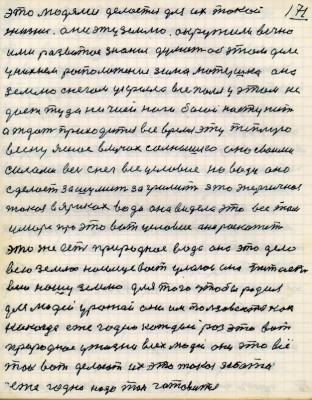 171
это людями делается для их такой
жизни. она эту землю. окружили вечно
или развитое знания думают об этом деле
у них нем расположена зима матушка она
землю снегом укрыла все поля у этом не
дает туда ни чией ноги босой наступить
а ждать приходится все время эту теплую
весну ясное в лучах солнышко оно своими
силами весь снег все условие на воду оно
сделает зашумит загремит это энергичная
такая в яриках вода она видела это все там
и море про это вот условие она расскажет
это же есть природная вода она это дело
всю землю
всю нашу землю для того чтобы родил
для людей урожай они им пользовались как
никогда еже годно каждый раз это вот
природное у жизни всех людей они это всё
так вот делают их это такая забота
еже годно надо так готовится